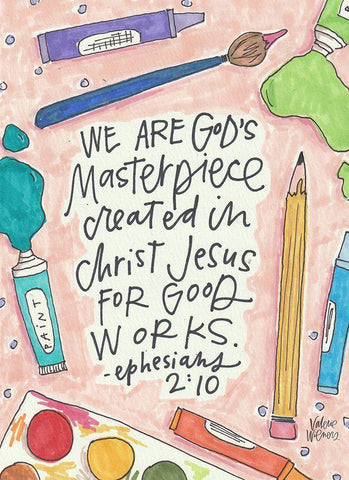 WE ARE GOD'S
Masterpiece
created in
christ Jesus
FOR GOOD
WORKS.
-ephesians
2:10
PAINT
Valerie
Wieners